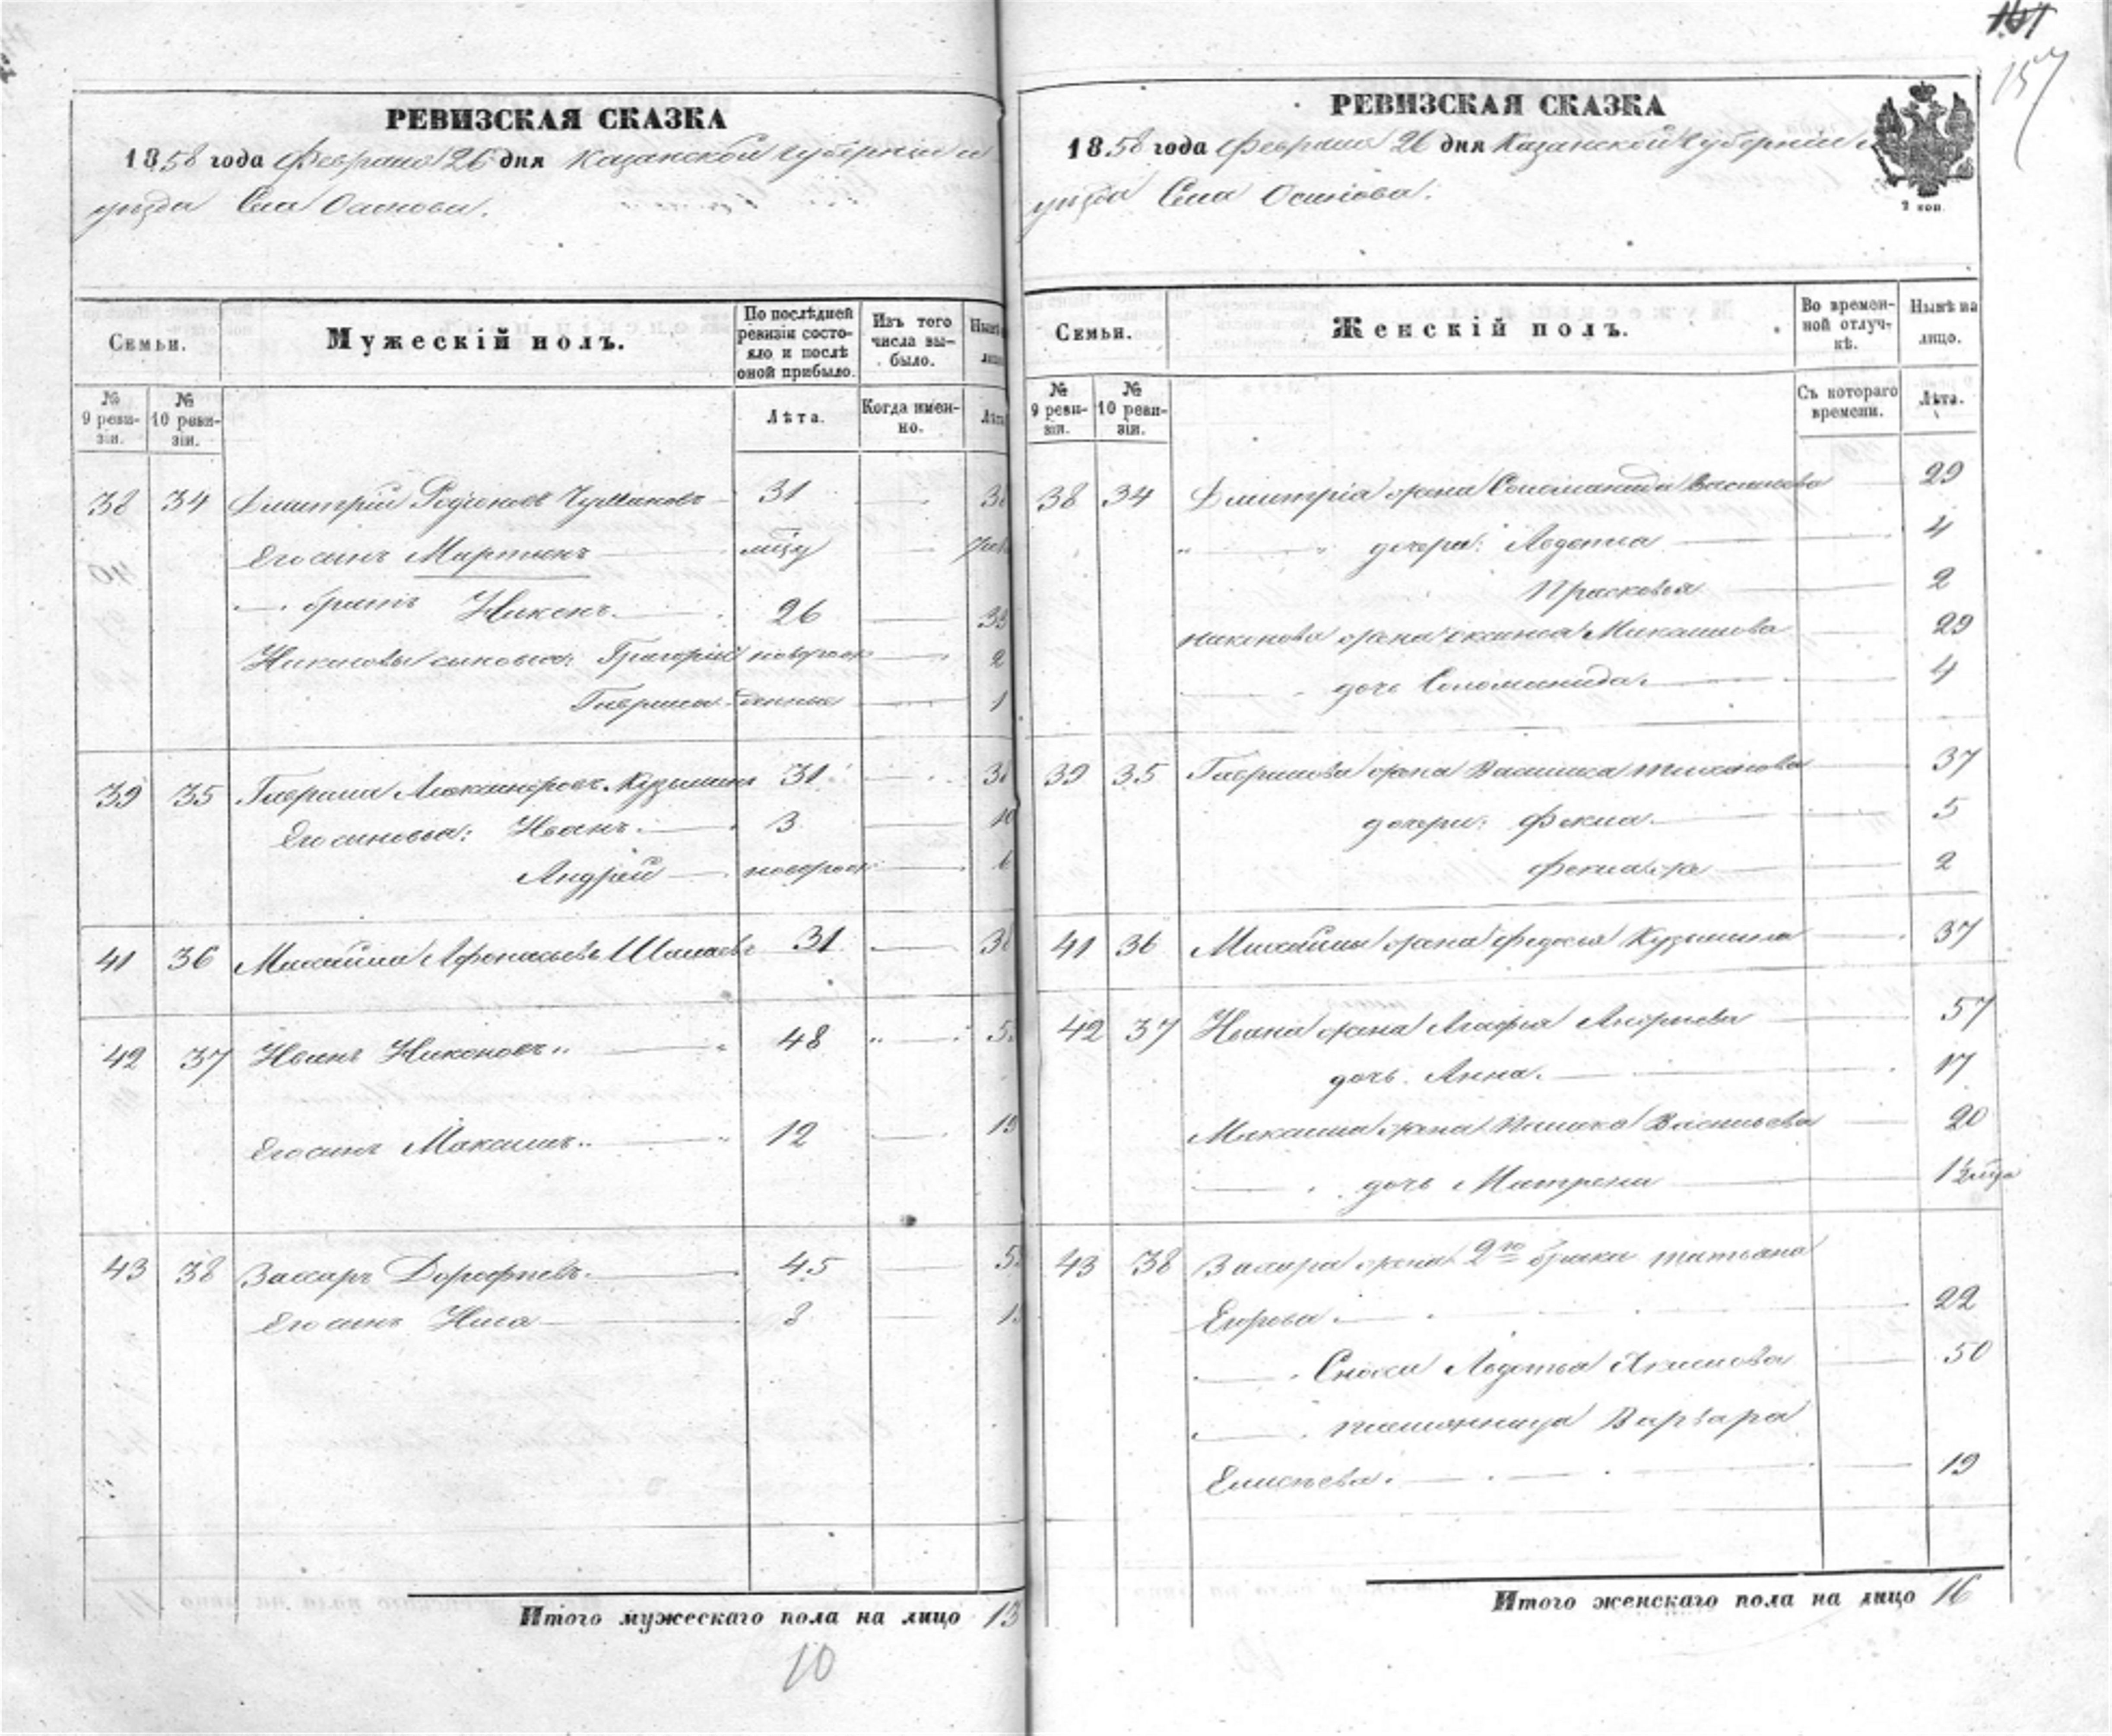 РЕВИЗСКАЯ СКАЗКА
1858 года Февраля 26 дня Казанской Губернiи и
уѣзда Села Осинова.
Семьи.
Мужескiй полъ.
По послѣдней ревизiи состояло и послѣ оной прибыло.
Изъ того числа выбыло.
Нынѣ
№ 9 ревизiи.
№ 10 ревизiи.
Лѣта.
Когда именно.
Лѣта
38 34 Дмитрiй Родiоновъ Чурмановъ 31 — 38
Его сынъ Мартынъ мѣсу —
— братъ Никонъ. — 26 — 33
Никоновы сыновья: Григорiй новорож — 2
Гаврила денные — 1
39 35 Гаврила Александровъ Кузьминъ 31 — 38
Его сыновья: Иванъ. — 3 — 10
Андрей — новорож — 6
41 36 Михайла Афонасьевъ 31 — 38
42 37 Иванъ Никоновъ „ — 48 „ — 5
Его сынъ Максимъ.. — 12 — 19
43 38 Захаръ Дорофѣевъ. — 45 5
Его сынъ Илья — 8 — 1
Итого мужескаго пола на лицо 13
10
161
157
РЕВИЗСКАЯ СКАЗКА
1858 года Февраля 26 дня Казанской Губернiи и
уѣзда Села Осинова.
2 коп.
Семьи.
Женскiй полъ.
Во временной отлучкѣ.
Нынѣ на лицо.
№ 9 ревизiи.
№ 10 ревизiи.
Съ котораго времени.
Лѣта.
38 34 Дмитрiя жена Соломанида Васильева 29
„ — „ дочери: Авдотья — 4
Прасковья — 2
Никонова жена Аксинья Микаилова — 29
— дочь Соломанида. — 4
39 35 Гаврилова жена Василиса Тихонова — 37
дочери: Фекла. — 5
— 2
41 36 Михайлы жена Федосья Кузьмина — 37
42 37 Ивана жена Агафья Андрѣева — 57
дочь Анна. — 17
Максима жена Васильева — 20
— дочь Матрена — 1½ мѣца
43 38 Захара жена 2го брака Татьяна
Егорова. — 22
— Сноха Авдотья Якимова — 50
— племянница Варвара
Елисѣева. — 19
Итого женскаго пола на лицо 16